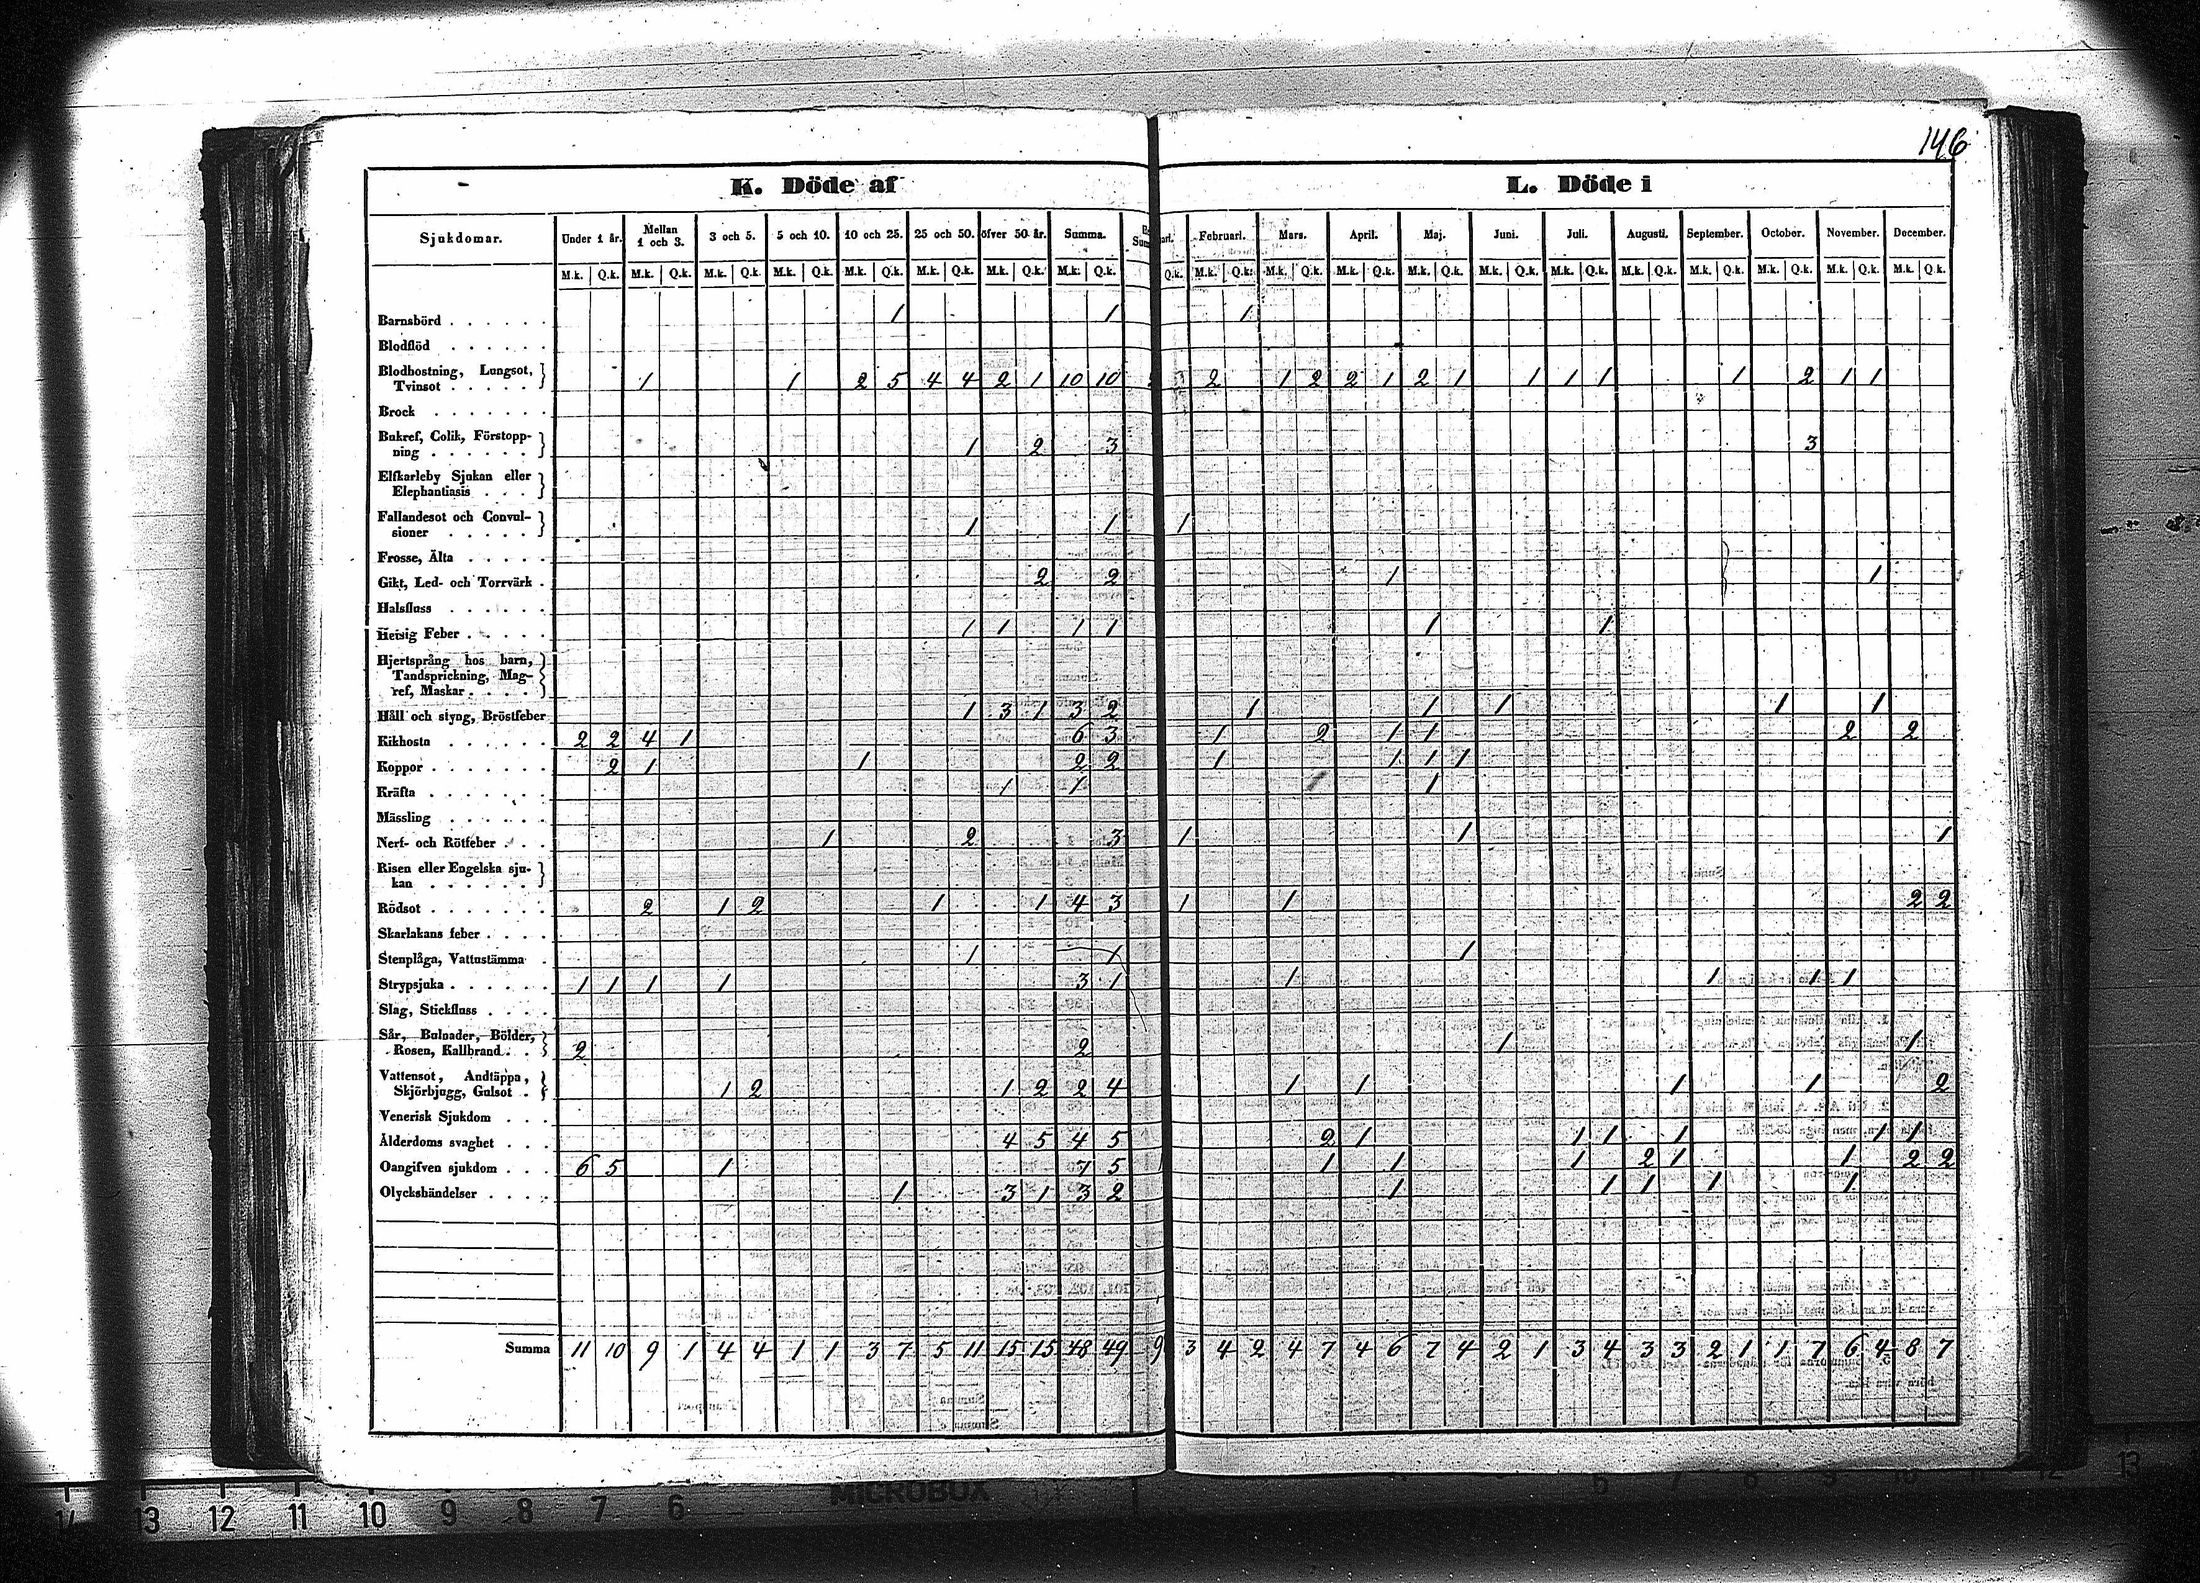 146
K. Döde af
L. Döde i
Sjukdomar. Under 1 år. Mellan 1 och 3. 3 och 5. 5 och 10. 10 och 25. 25 och 50. öfver 50 år. Summa. Februari. Mars. April. Maj. Juni. Juli. Augusti. September. October. November. December.
M.k. Q.k. M.k. Q.k. M.k. Q.k. M.k. Q.k. M.k. Q.k. M.k. Q.k. M.k. Q.k. M.k. Q.k. Q.k. M.k. Q.k. M.k. Q.k. M.k. Q.k. M.k. Q.k. M.k. Q.k. M.k. Q.k. M.k. Q.k. M.k. Q.k. M.k. Q.k. M.k. Q.k. M.k. Q.k.
Barnsbörd 1 1 1
Blodflöd
Blodhostning, Lungsot,
Tvinsot 1 1 2 5 4 4 2 1 10 10 2 1 2 2 1 2 1 1 1 1 1 2 1 1
Brock
Bukref, Colik, Förstopp-
ning 1 2 3 3
Elfkarleby Sjukan eller
Elephantiasis
Fallandesot och Convul-
sioner 1 1 1
Frosse, Älta
Gikt, Led- och Torrvärk 2 2 1 1
Halsfluss
Hetsig Feber 1 1 1 1 1 1
Hjertsprång hos barn,
Tandsprickning, Mag-
ref, Maskar
Håll och styng, Bröstfeber 1 3 1 3 2 1 1 1 1 1
Kikhosta 2 2 4 1 6 3 1 2 1 1 2 2
Koppor 2 1 1 2 2 1 1 1 1
Kräfta 1 1 1
Mässling
Nerf- och Rötfeber 1 2 3 1 1 1
Risen eller Engelska sju-
kan
Rödsot 2 1 2 1 1 4 3 1 1 2 2
Skarlakans feber
Stenplåga, Vattustämma 1 1 1
Strypsjuka 1 1 1 1 3 1 1 1 1 1
Slag, Stickfluss
Sår, Bulnader, Bölder,
Rosen, Kallbrand 2 2 1 1
Vattensot, Andtäppa,
Skjörbjugg, Gulsot 1 2 1 2 2 4 1 1 1 1 2
Venerisk Sjukdom
Ålderdoms svaghet 4 5 4 5 2 1 1 1 1 1 1
Oangifven sjukdom 6 5 1 7 5 1 1 1 2 1 1 2 2
Olyckshändelser 1 3 1 3 2 1 1 1 1 1
Summa 11 10 9 1 4 4 1 1 3 7 5 11 15 15 48 49 9 3 4 2 4 7 4 6 7 4 2 1 3 4 3 3 2 1 1 7 6 4 8 7
MICROBOX
14 13 12 11 10 9 8 7 6
6 7 8 9 10 11 12 13